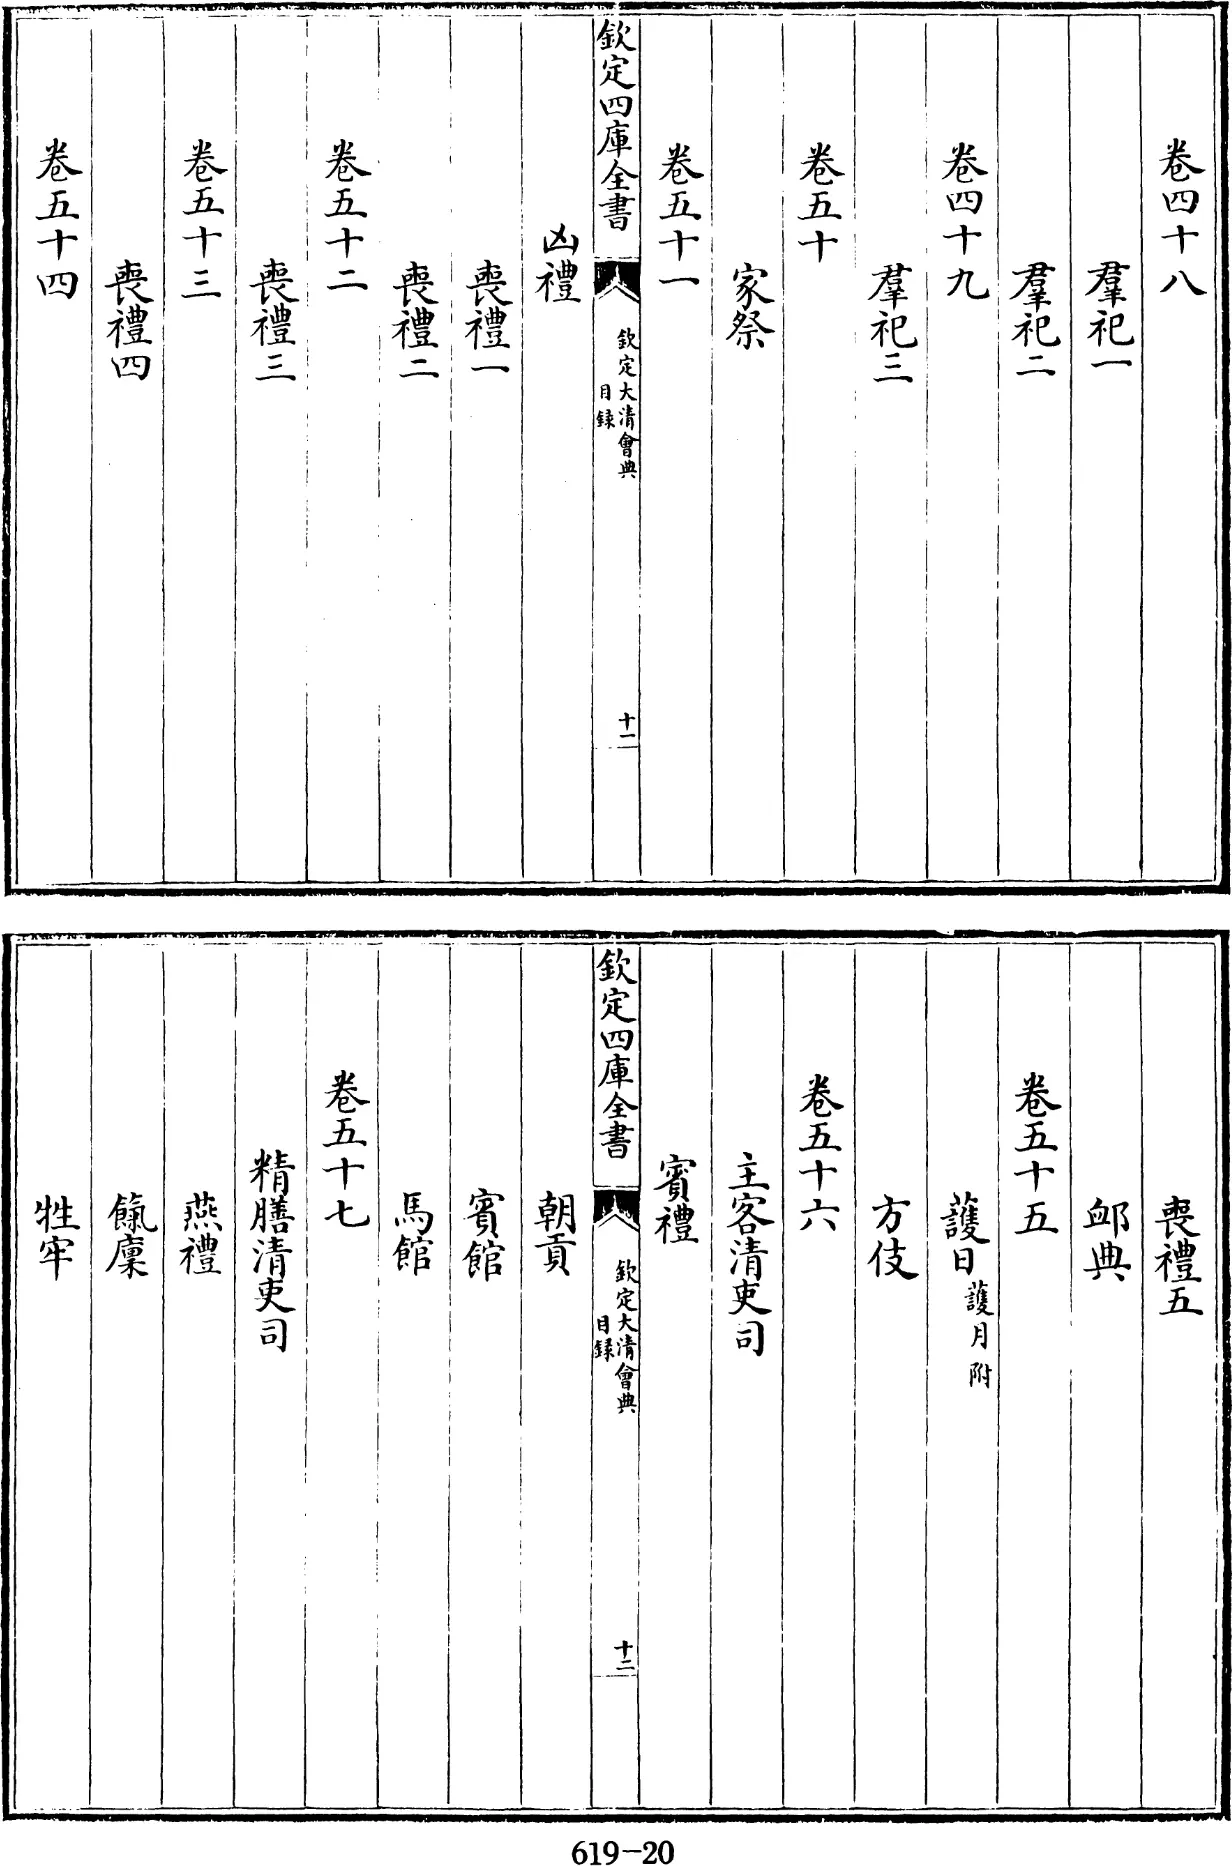 卷四十八
羣祀一
羣祀二
卷四十九
羣祀三
卷五十
家祭
卷五十一
欽定四庫全書
欽定大清會典
目録
十一
凶禮
喪禮一
喪禮二
卷五十二
喪禮三
卷五十三
喪禮四
卷五十四
喪禮五
卹典
卷五十五
護日護月附
方伎
卷五十六
主客清吏司
賓禮
欽定四庫全書
欽定大清會典
目録
十二
朝貢
賓館
馬館
卷五十七
精膳清吏司
燕禮
餼廩
牲牢
619-20